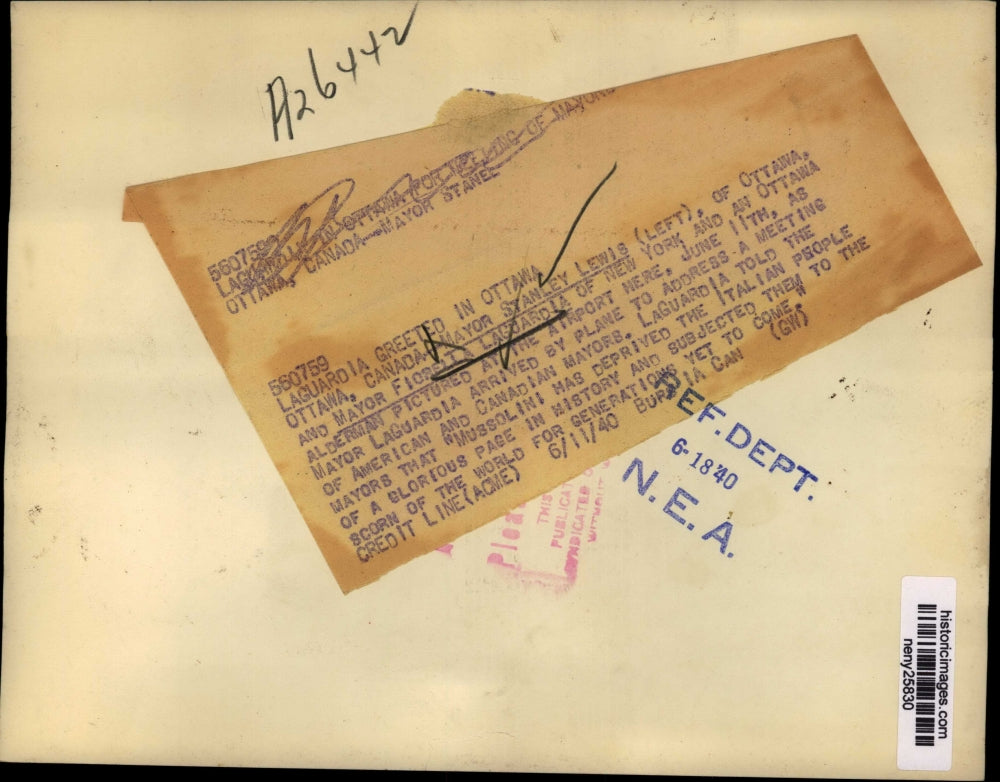 A26442
560759
LAGUARDIA IN OTTAWA FOR MEETING OF MAYORS
OTTAWA, CANADA--MAYOR STANEL
560759
LAGUARDIA GREETED IN OTTAWA
OTTAWA, CANADA--MAYOR STANLEY LEWIS (LEFT), OF OTTAWA,
AND MAYOR FIORELLO LAGUARDIA OF NEW YORK AND AN OTTAWA
ALDERMAN PICTURED AT THE AIRPORT HERE, JUNE 11TH, AS
MAYOR LAGUARDIA ARRIVED BY PLANE TO ADDRESS A MEETING
OF AMERICAN AND CANADIAN MAYORS. LAGUARDIA TOLD THE
MAYORS THAT "MUSSOLINI HAS DEPRIVED THE ITALIAN PEOPLE
OF A GLORIOUS PAGE IN HISTORY AND SUBJECTED THEM TO THE
SCORN OF THE WORLD FOR GENERATIONS YET TO COME."
CREDIT LINE (ACME) 6/11/40 BUR CAN (GW)
REF. DEPT.
6-18 40
N. E. A.
Plea
THIS
PUBLICAT
SYNDICATED
WITHOUT
historicimages.com
neny25830